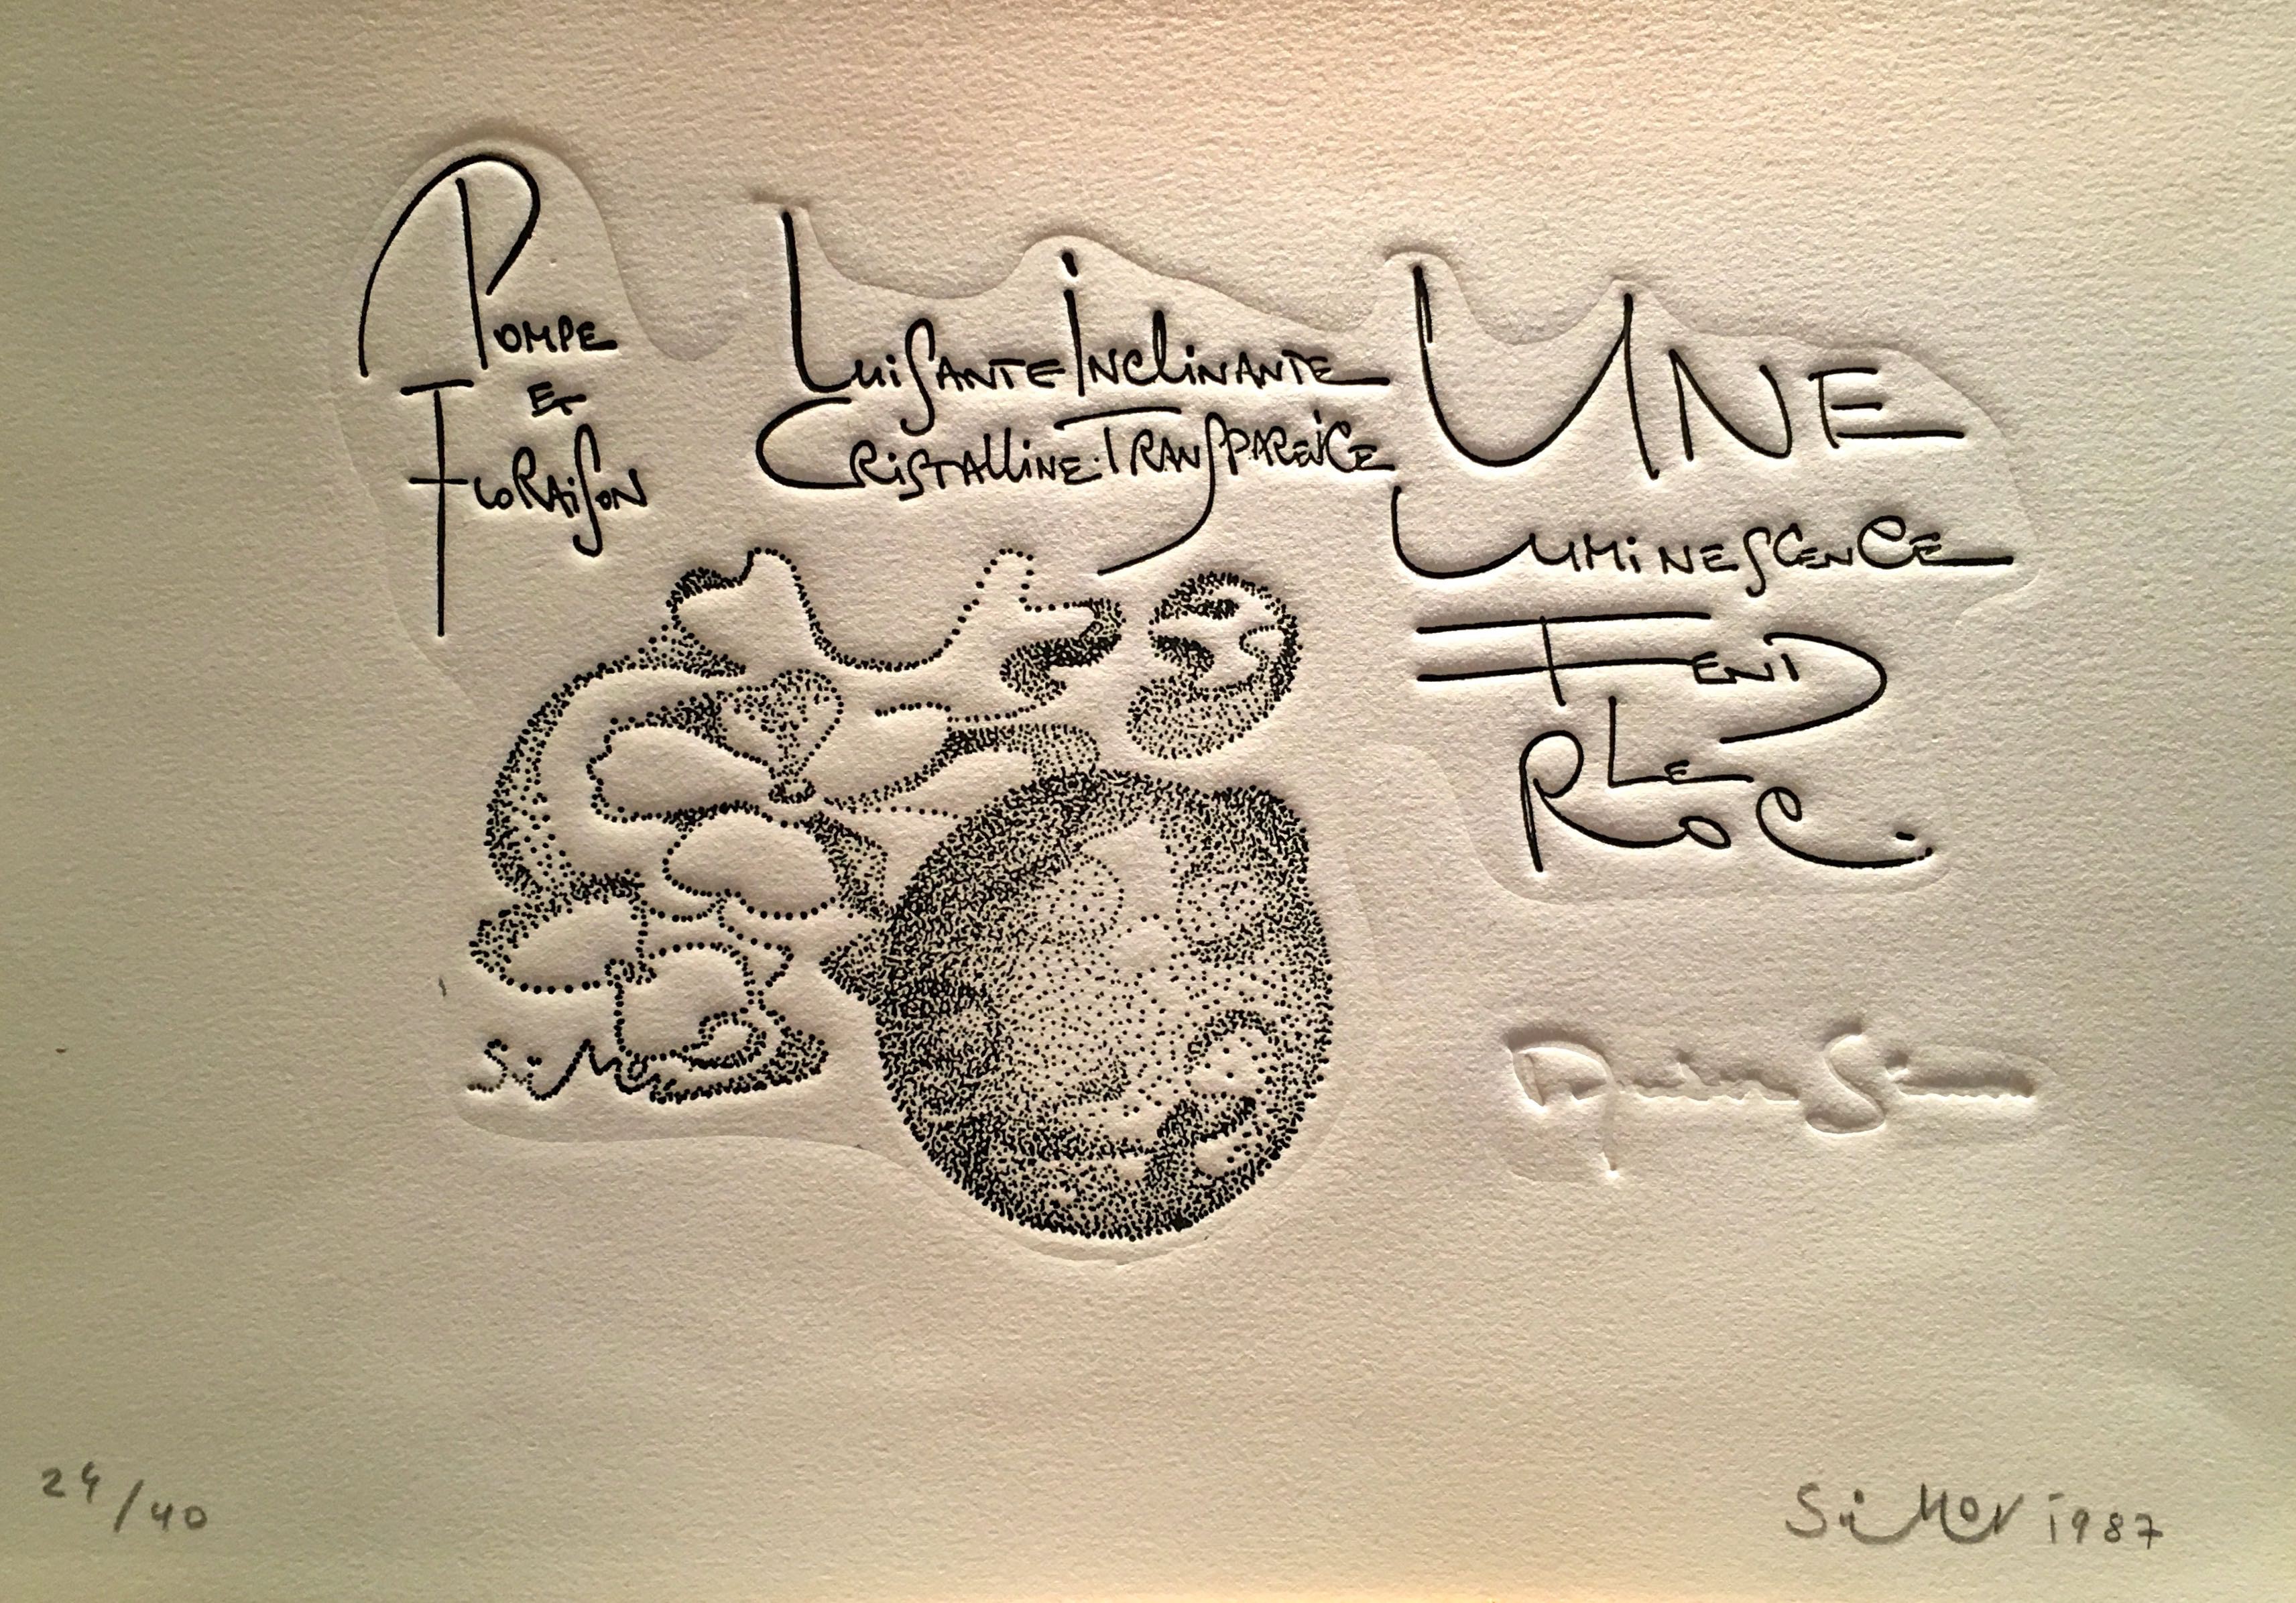 Pompe
Et
Floraison
Luisante Inclinante
Cristalline-Transpparence
UNE
Luminescence
Fend
Le
Roc.
SiMon
24/40
SiMON 1987